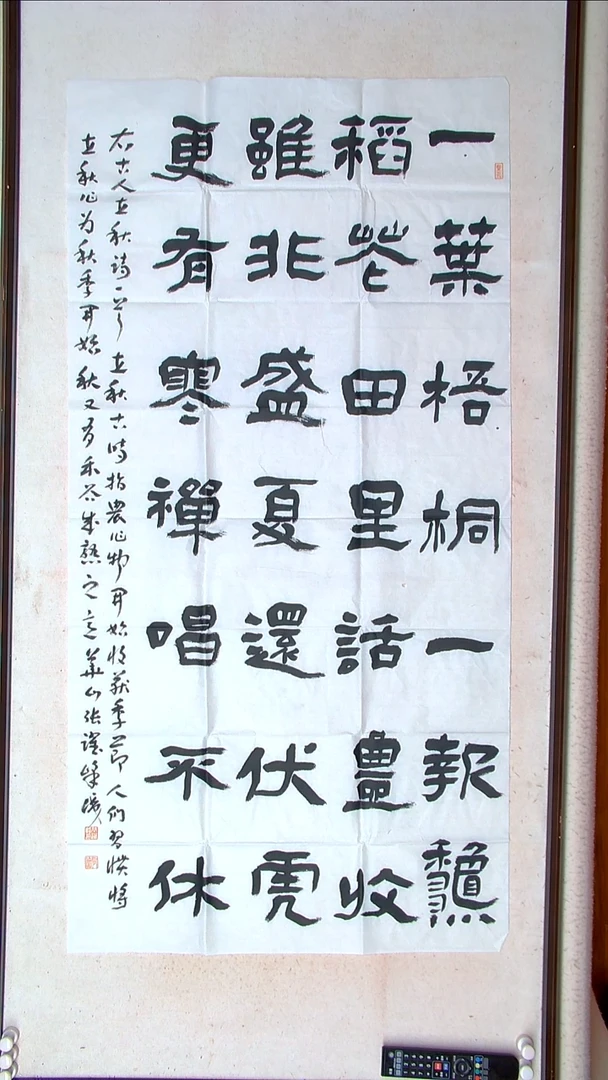 一葉梧桐一報龝
稻花田里話豐收
雖非盛夏還伏虎
更有寒禪唱不休
右古人立秋诗一首立秋古时指農作物開始收获季节人们習惯将
立秋作为秋季開始秋又有禾谷成熟之意華山张